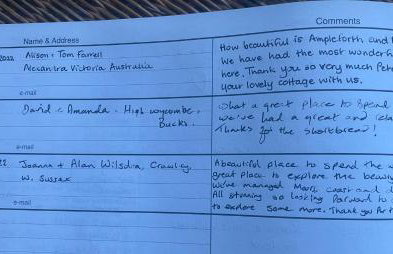 Comments
Name & Address
2022 Alison + Tom Farrell
Alexandra Victoria Australia
e-mail
How beautiful is Ampleforth and
We have had the most wonderf
here. Thank you so very much Pet
your lovely cottage with us.
David & Amanda. High Wycombe.
Bucks.
e-mail
What a great place to spend
we've had a great and rela
Thanks for the shortbread!
22. Joanna + Alan Wilsdia, Crawley,
W. Sussex
e-mail
A beautiful place to spend the w
great place to explore the beauty
We've managed Moors, coast and
All stunning so looking forward to
to explore some more. Thank you for